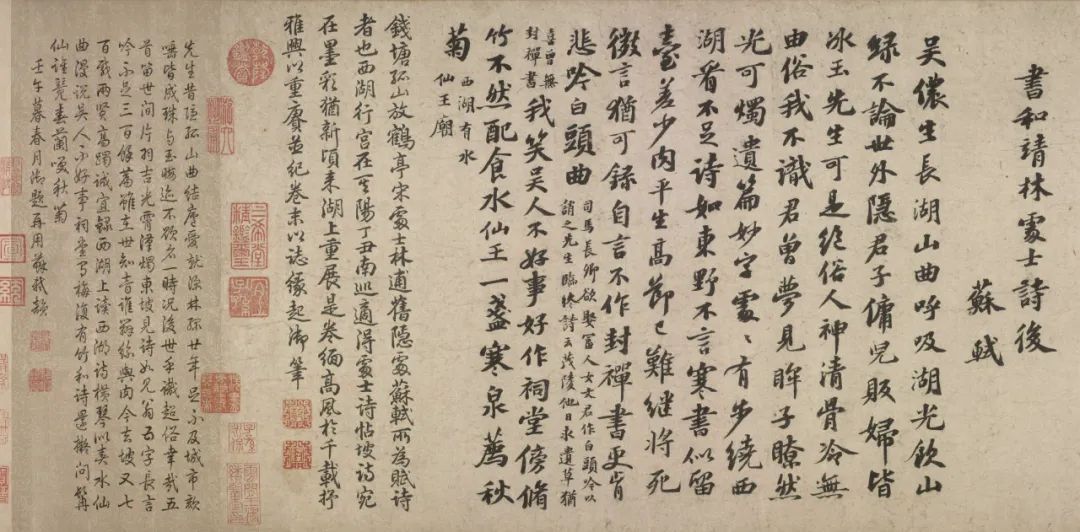 書和靖林處士詩後
蘇軾
吳儂生長湖山曲呼吸湖光飲山
綠不論世外隱君子傭兒販婦皆
冰玉先生可是絕俗人神清骨冷無
由俗我不識君曾夢見眸子瞭然
光可燭遺篇妙字處〻有步繞西
湖看不足詩如東野不言寒書似留
臺差少肉平生高節已難繼將死
微言猶可錄自言不作封禪書更肯
悲吟白頭曲
司馬長卿欲娶富人女文君作白頭吟以
誚之先生臨終詩云茂陵他日求遺草猶
喜曾無
封禪書
我笑吳人不好事好作祠堂傍脩
竹不然配食水仙王一盞寒泉薦秋
菊
西湖有水
仙王廟
錢塘孤山放鶴亭宋處士林逋舊隱處蘇軾所為賦詩
者也西湖行宮在其陽丁丑南巡適得處士詩帖坡詩宛
在墨彩猶新頃來湖上重展是卷緬高風於千載抒
雅興以重賡並紀卷末以誌緣起御筆
先生昔隱孤山曲結廬愛就深林綠廿年足不及城市欬
唾皆成珠與玉
不欲名一時況後世手識超俗幸哉五
首留世間片羽吉光霄漢燭東坡見詩如見翁百字長言
吟不足三百餘篇雖在世知音誰
絲與肉今去坡又七
百載兩賢高躅誠宜錄西湖上讀西湖詩橫琴以奏水仙
曲漫說吳人不好事祠堂
梅復有竹和詩還擬問髯
仙
秋菊
壬午暮春月御題再用蘇軾韻